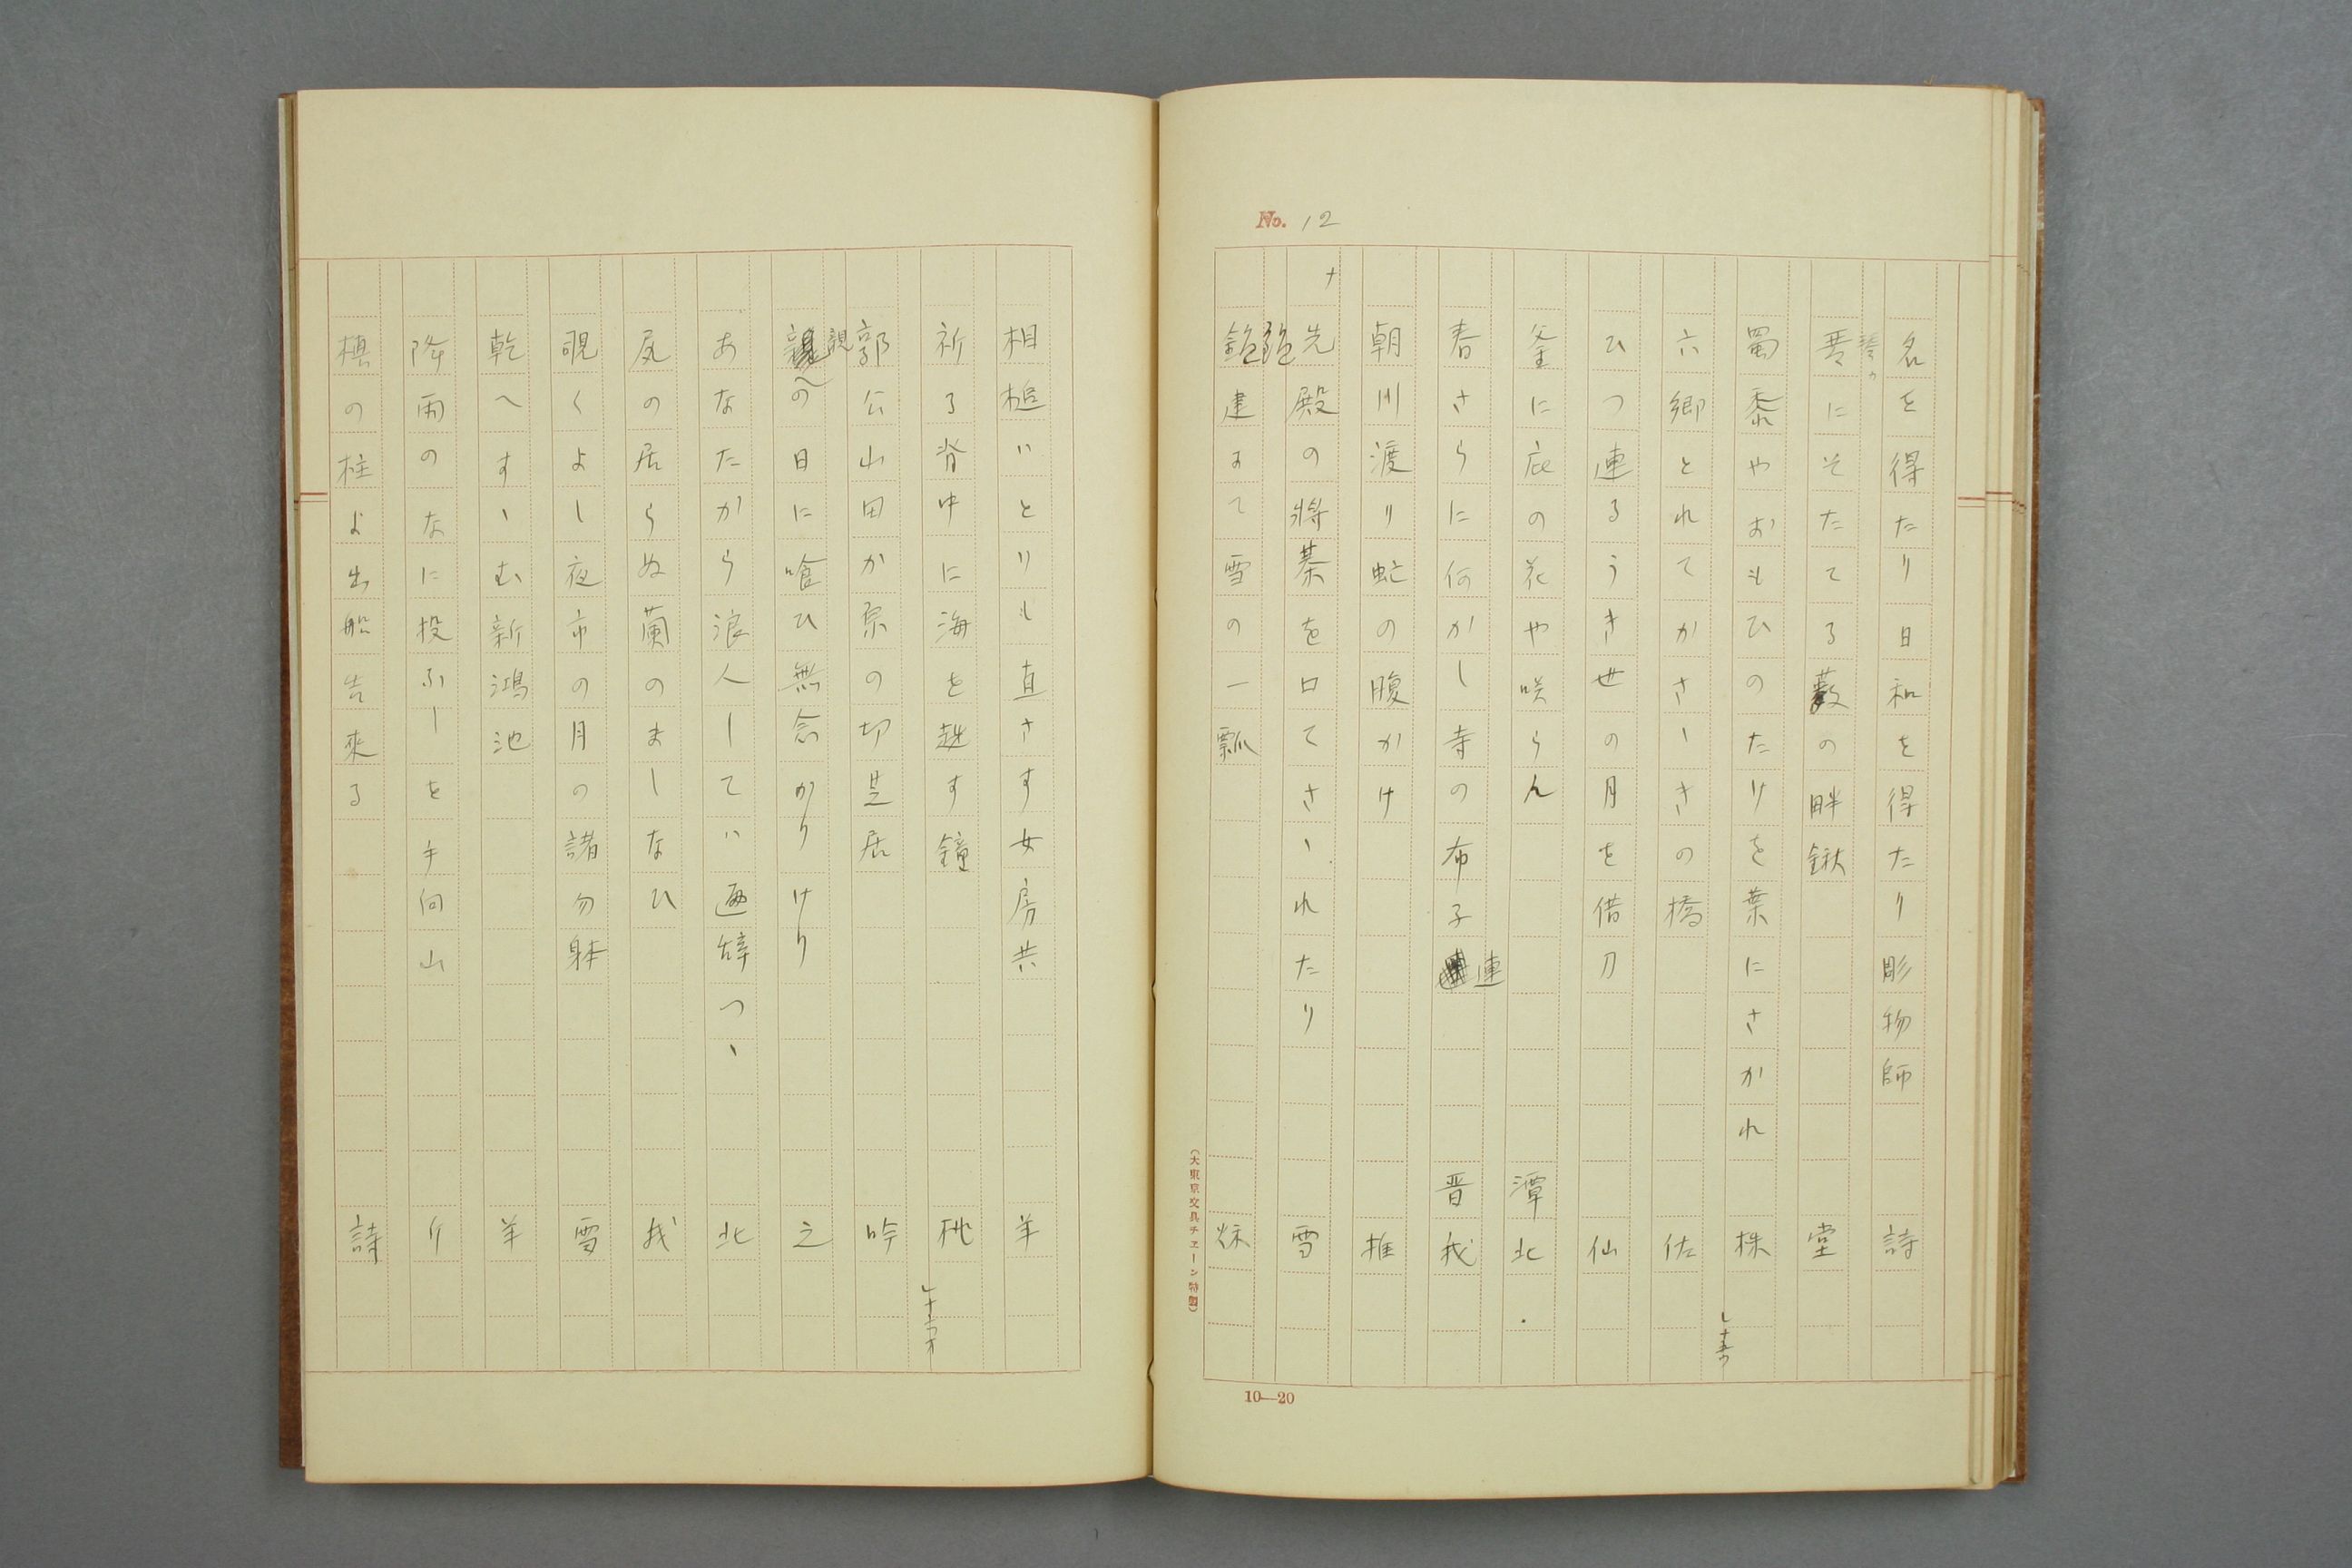 No. 12
名を得たり日和を得たり彫物師 詩
琴にそたてる藪の畔鍬 堂
蜀黍やおもひのたけを葉にさかれ 株
六郷とれてかさゝきの橋 佐
ひつ連るうき世の月を借刀 仙
釜に庇の花や咲らん 潭北
春さらに何かし寺の布子連 晋我
朝川渡り虻の腹かけ 推
先殿の将棊を口てさゝれたり 雪
鎗建みて雪の一瓢 秌
(大東京文具チエーン特製)
10—20
相槌ハとりも直さす女房共 羊
祈る背中に海を越す鐘 桃
郭公山田か原の切芝居 吟
親の日に喰ひ無念かりけり 之
あなたから浪人してハ遍辞つゝ 北
尻の居らぬ蘭のましなひ 我
覗くよし夜市の月の諸勿躰 雪
乾へすゝむ新鴻池 羊
降雨のなに投ふしを手向山 り
槙の柱よ出船告来る 詩